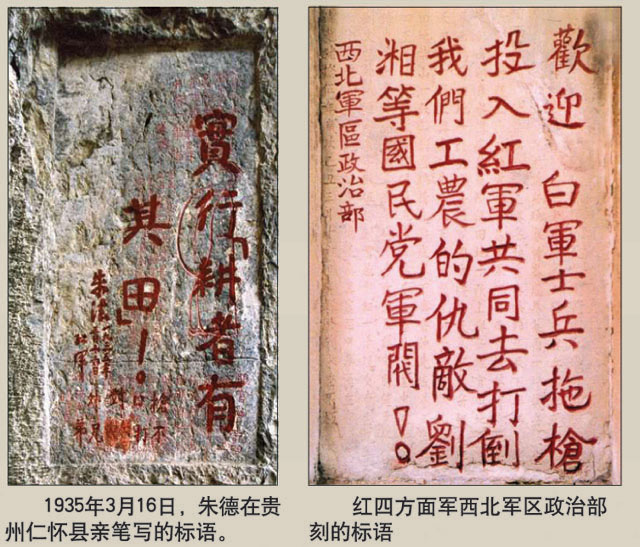 實行「耕者有
其田」!
朱德
歡迎 白軍士兵拖槍
投入紅軍共同去打倒
我們工農的仇敵劉
湘等國民党軍閥!
西北軍區政治部
1935年3月16日，朱德在贵
州仁怀县亲笔写的标语。
红四方面军西北军区政治部
刻的标语